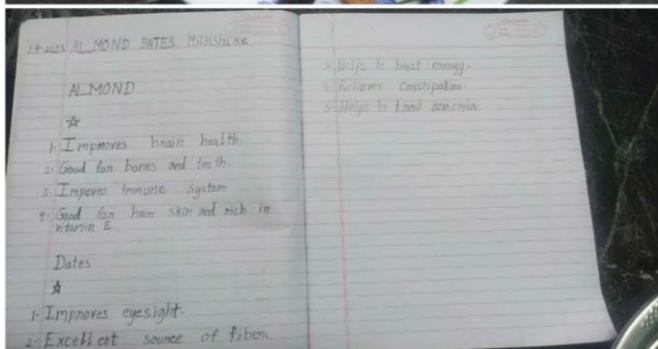 AL MOND DATES Milkshake
ALMOND
1. Improves brain health.
2. Good for bones and teeth.
3. Impoves immune System
4. Good for hair skin and rich in
vitamin E
Dates
1. Improves eyesight.
2. Excellent source of fiber.
3. Helps to boost energy.
4. Relieves constipation.
5. Helps to treat anaemia